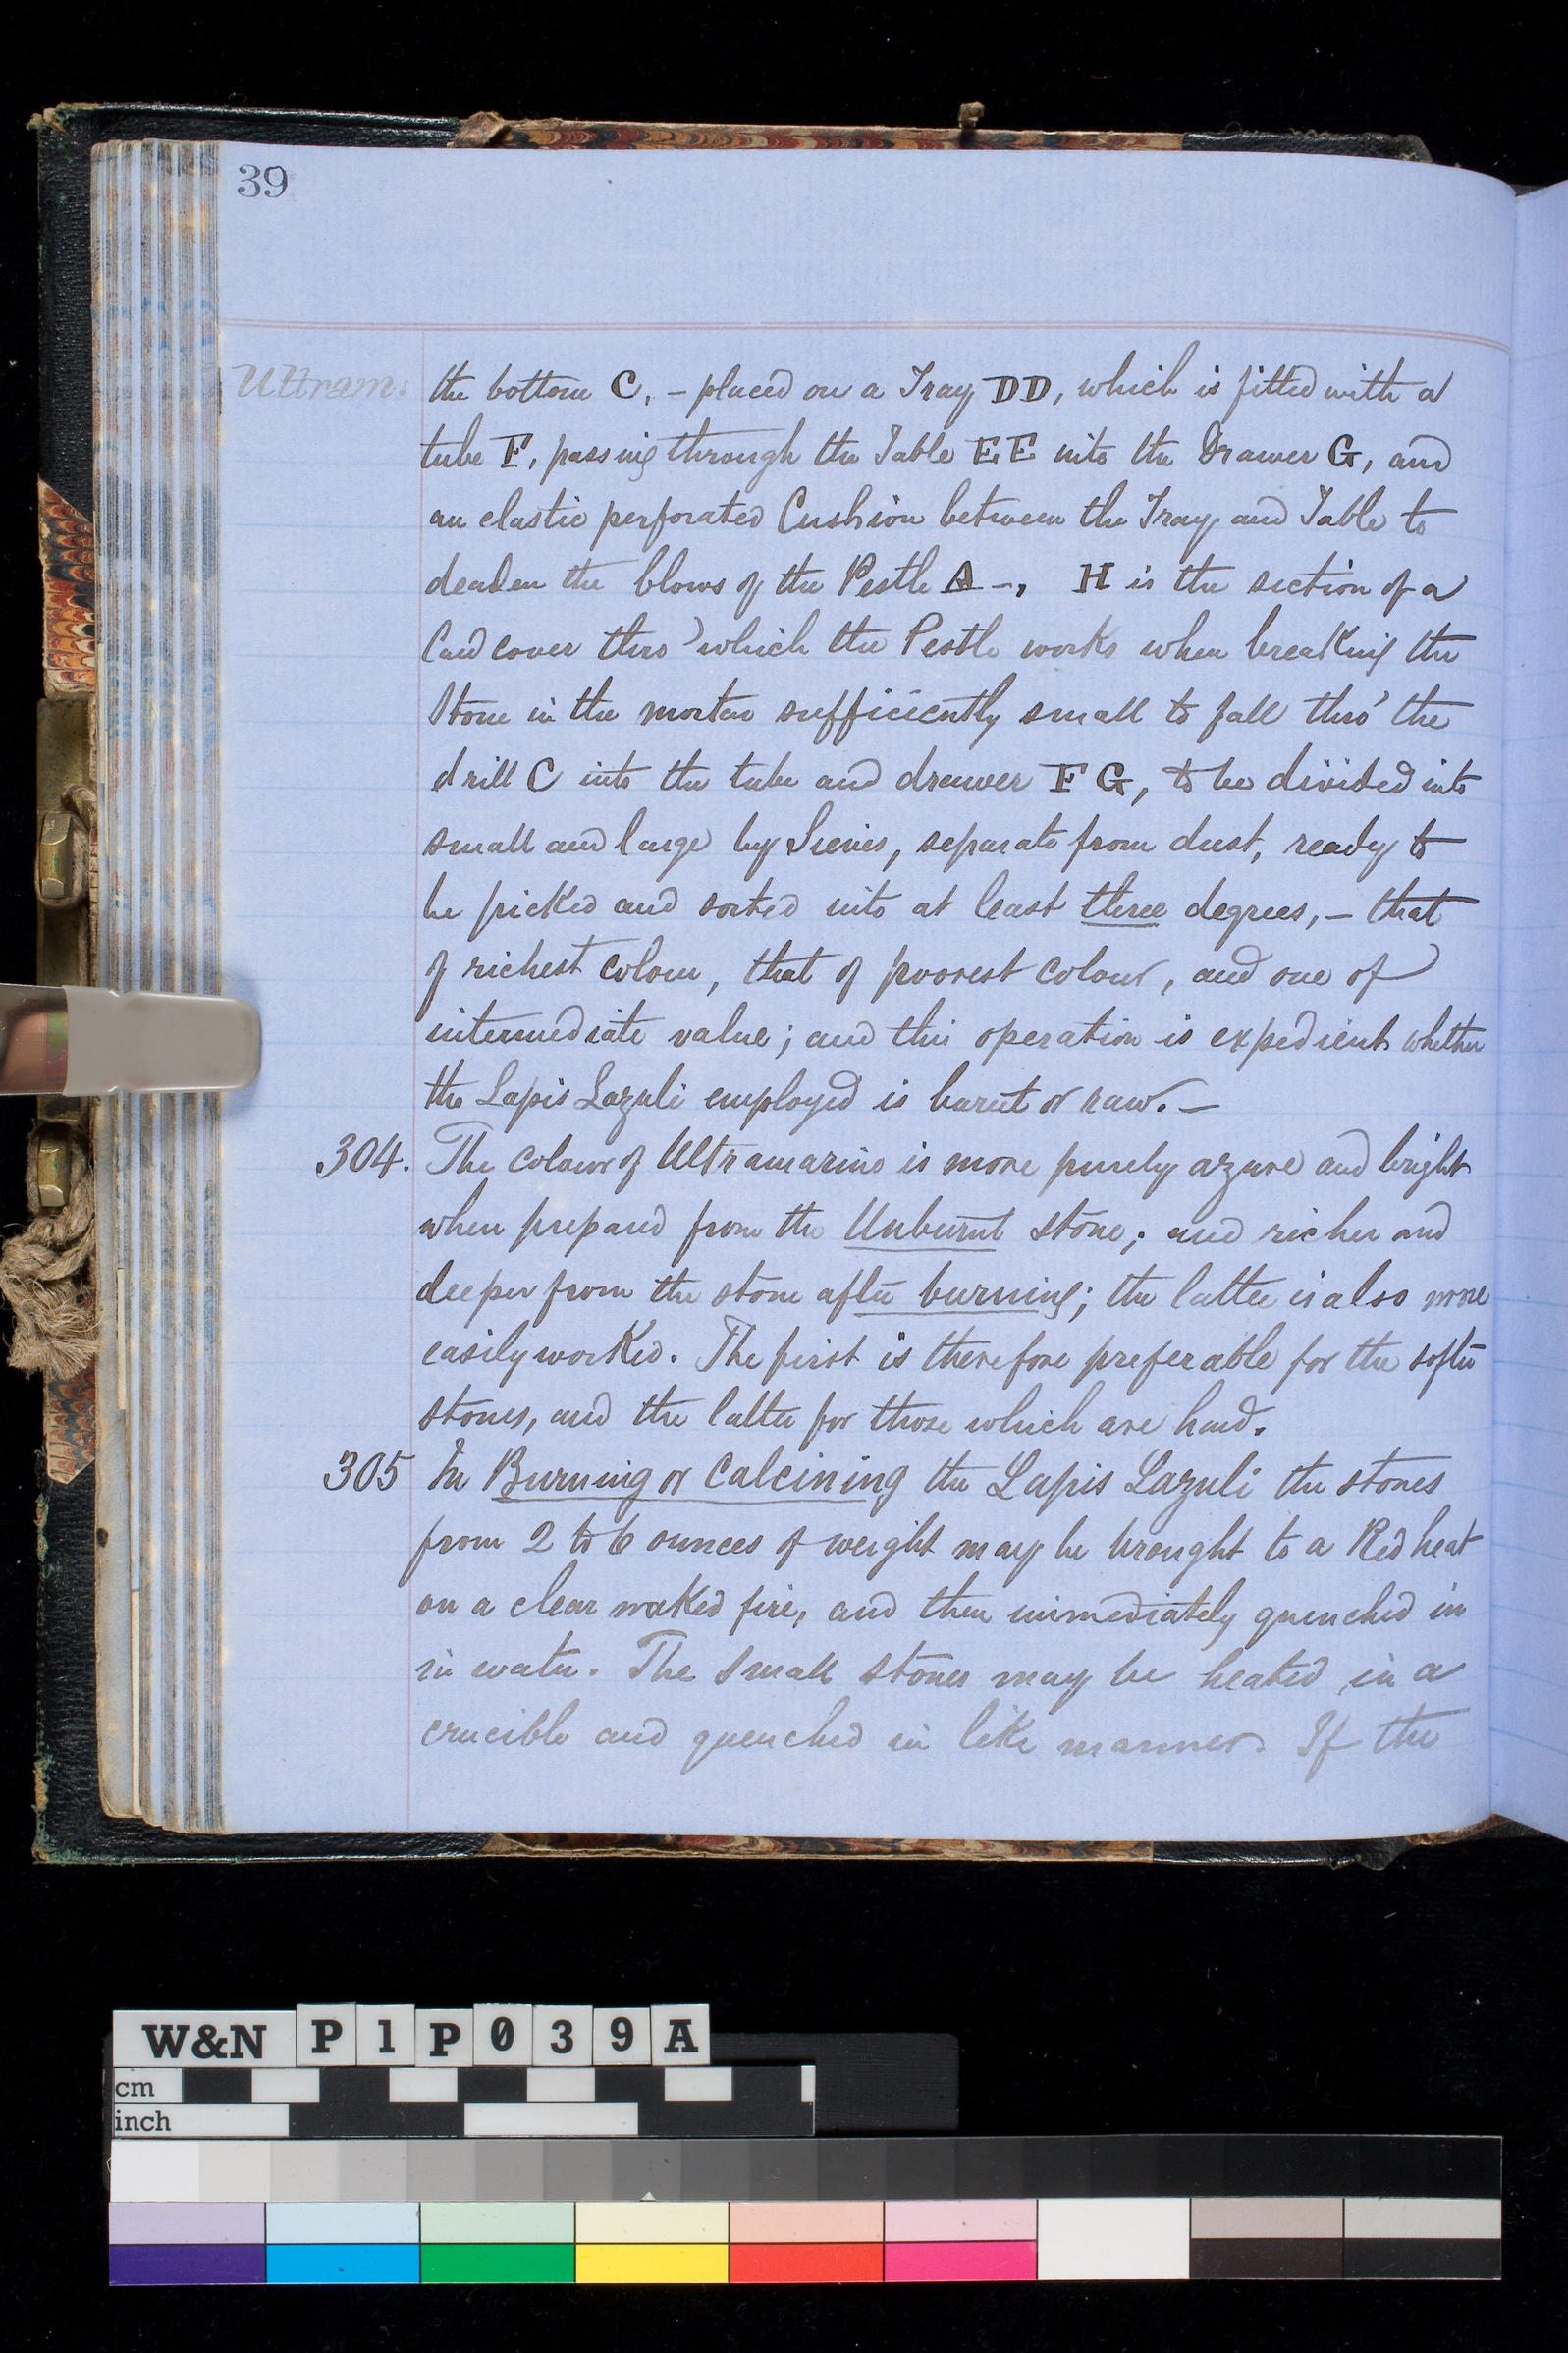 39
Ultram:
the bottom C, - placed on a Tray DD, which is fitted with a
tube F, passing through the Table EE into the Drawer G, and
an elastic perforated Cushion between the Tray and Table to
deaden the blows of the Pestle A -, H is the section of a
Card cover thro' which the Pestle works when breaking the
Stone in the mortar sufficiently small to fall thro' the
drill C into the tube and drawer F G, to be divided into
small and large by Sieves, separate from dust, ready to
be picked and sorted into at least three degrees, - that
of richest colour, that of poorest colour, and one of
intermediate value; and this operation is expedient whether
the Lapis Lazuli employed is burnt or raw. -
304. The colour of Ultramarine is more purely azure and bright
when prepared from the Unburnt stone; and richer and
deeper from the stone after burning; the latter is also more
easily worked. The first is therefore preferable for the softer
stones, and the latter for those which are hard.
305 In Burning or Calcining the Lapis Lazuli the stones
from 2 to 6 ounces of weight may be brought to a Red heat
on a clear fire, and then immediately quenched in
in water. The small stones may be heated in a
crucible and quenched in like manner. If the
W&N P1P039A
cm
inch